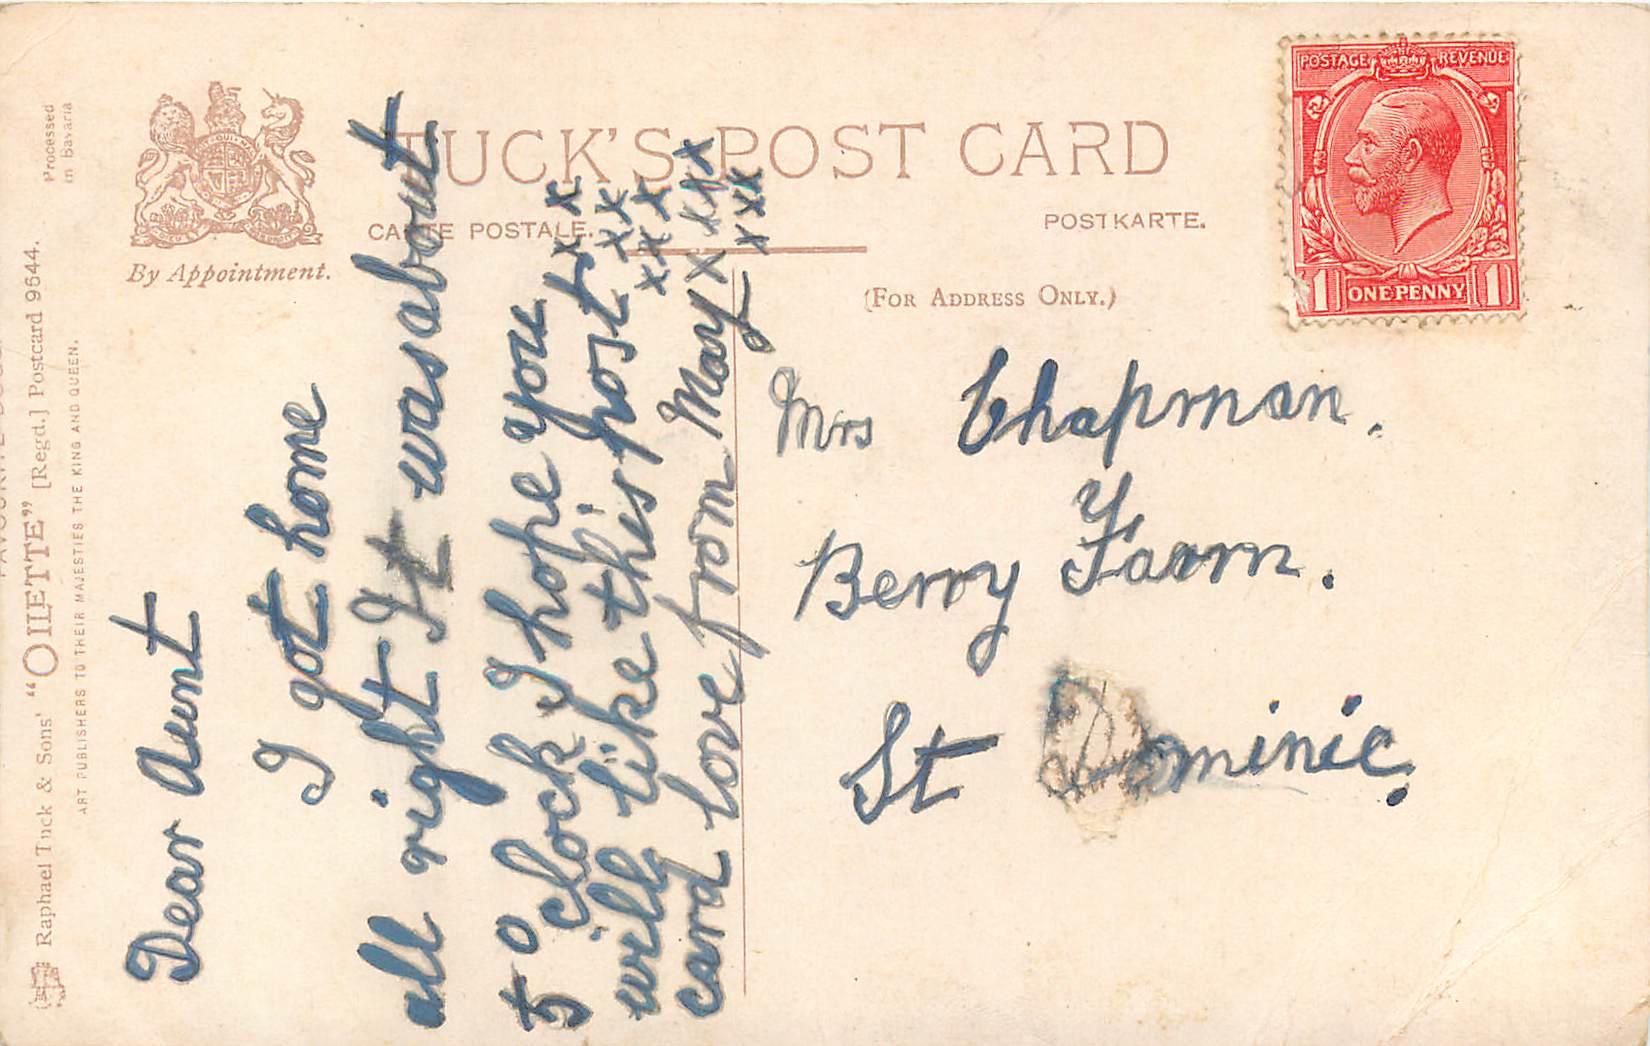 Processed
in Bavaria
Raphael Tuck & Sons' "OILETTE" [Regd.] Postcard 9644.
ART PUBLISHERS TO THEIR MAJESTIES THE KING AND QUEEN.
By Appointment.
TUCK'S POST CARD
CARTE POSTALE.
POSTKARTE.
(FOR ADDRESS ONLY.)
POSTAGE REVENUE
1 ONE PENNY 1
Dear Aunt
I got home
all right It was about
5 o clock I hope you
will like this post x x
card love from May x xxx
xx
xxx
xxx
Mrs Chapman.
Berry Farm.
St Dominic.